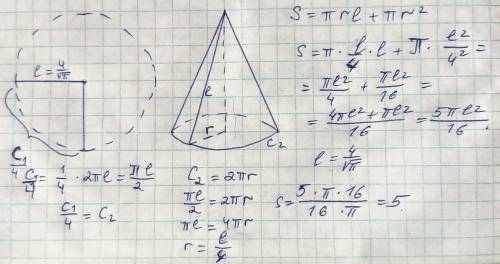 l = 4/√π
C₁/4
C₁/4 = 1/4 · 2πl = πl/2
C₁/4 = C₂
l
r
C₂
C₂ = 2πr
πl/2 = 2πr
πl = 4πr
r = l/4
S = πrl + πr²
S = π · l/4 · l + π · l²/4² =
= πl²/4 + πl²/16 =
= 4πl² + πl²/16 = 5πl²/16
l = 4/√π
S = 5 · π · 16/16 · π = 5.